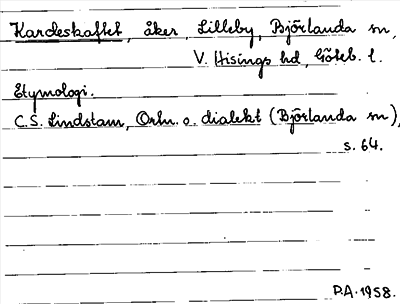 Kardeskaftet, åker, Lilleby, Björlanda sn,
V. Hisings hd, Göteb. l.
Etymologi.
C.S. Lindstam, Ortn. o. dialekt (Björlanda sn),
s. 64.
P.A. 1958.